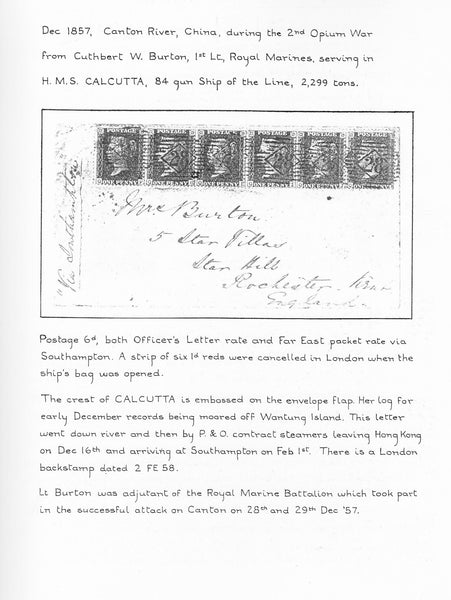 Dec 1857, Canton River, China, during the 2nd Opium War
from Cuthbert W. Burton, 1st Lt, Royal Marines, serving in
H.M.S. CALCUTTA, 84 gun Ship of the Line, 2,299 tons.
POSTAGE POSTAGE POSTAGE POSTAGE POSTAGE POSTAGE
ONE PENNY ONE PENNY ONE PENNY ONE PENNY ONE PENNY ONE PENNY
Via Southampton
Mrs Burton
5 Star Villas
Star Hill
Rochester
England
Postage 6d, both Officer's Letter rate and Far East packet rate via
Southampton. A strip of six 1d reds were cancelled in London when the
ship's bag was opened.
The crest of CALCUTTA is embossed on the envelope flap. Her log for
early December records being moored off Wantung Island. This letter
went down river and then by P. & O. contract steamers leaving Hong Kong
on Dec 16th and arriving at Southampton on Feb 1st. There is a London
backstamp dated 2 FE 58.
Lt Burton was adjutant of the Royal Marine Battalion which took part
in the successful attack on Canton on 28th and 29th Dec '57.